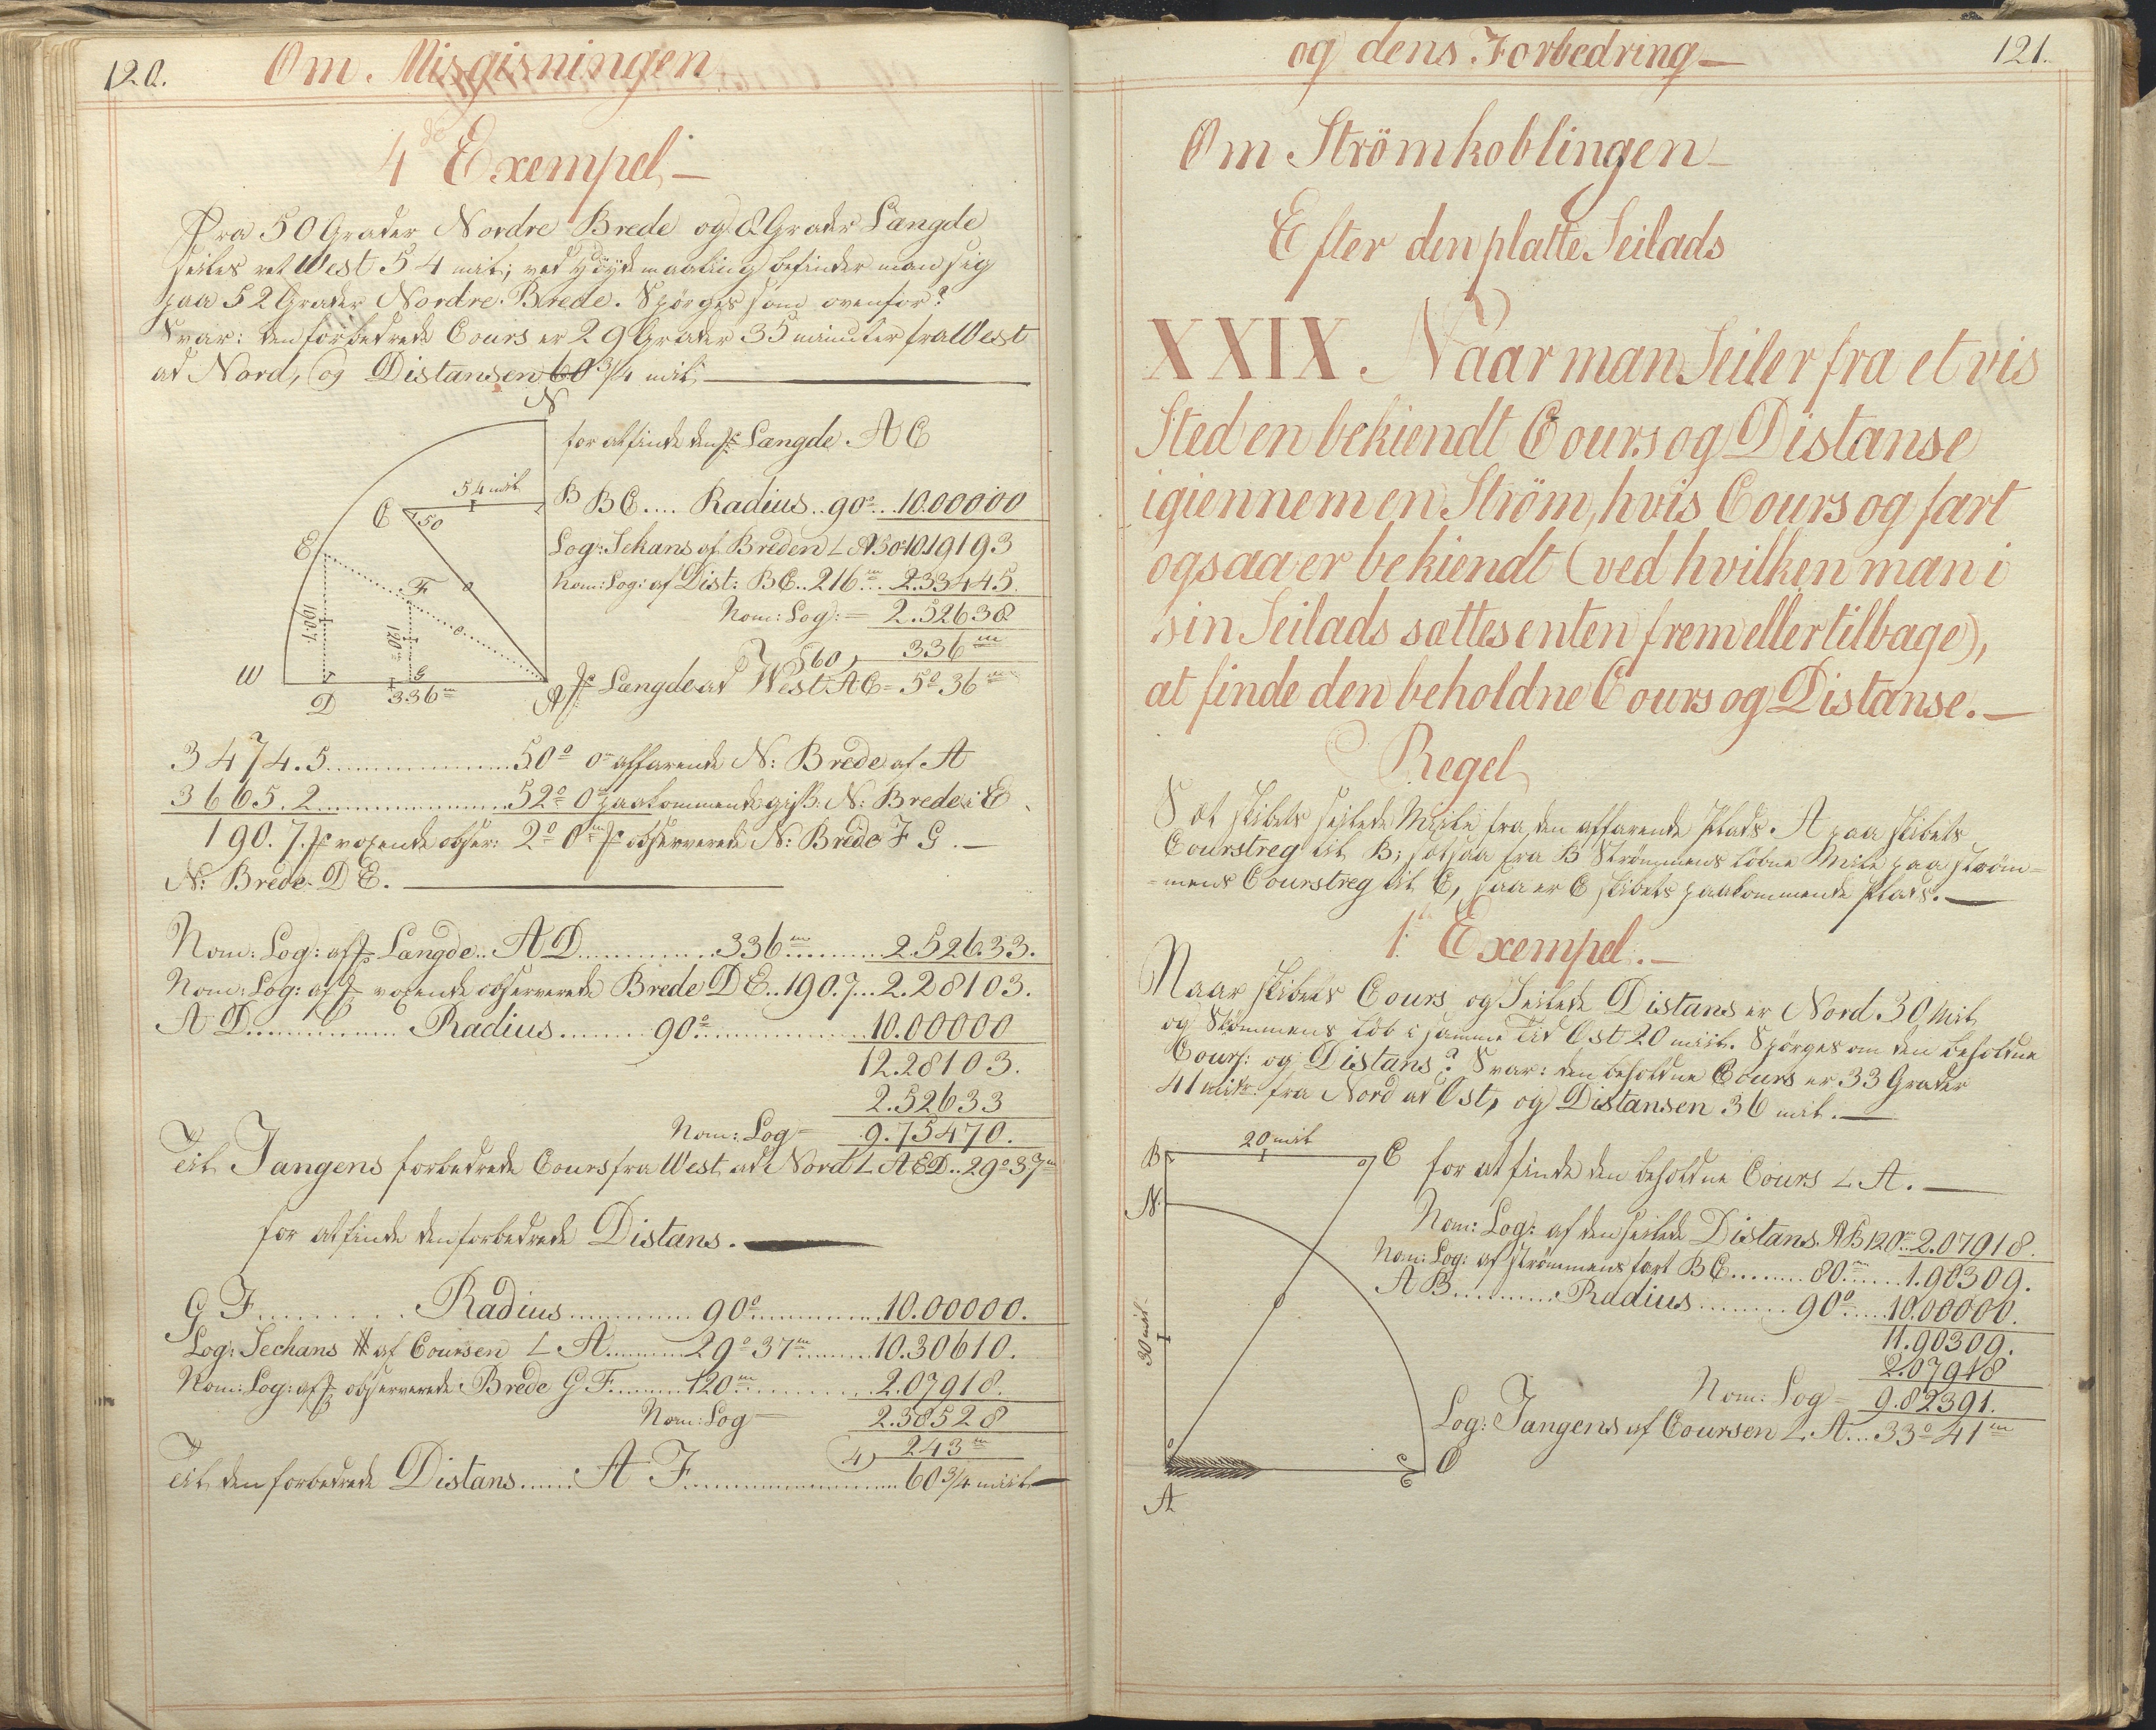 120.
Om Misgisningen
4de Exempel
Fra 50 Grader Nordre Brede og 8 Grader Længde
seiles ret West 54 miil; ved Höydemaaling befinder man sig
paa 52 Grader Nordre Brede. Spörges som ovenfor?
Svar: den forbedrede Cours er 29 Grader 35 minuter fra West
ad Nord, og Distansen 60 3/4 miil
N
for at finde den Længde A C
54 miil
B
B C .... Radius .. 90° .. 10.00000
C
50
Log: Sekans af Breden L A 50° 10.19193
E
Nom: Log: af Dist: BC .. 216 m .. 2.33445.
F
Nom: Log: = 2.52638
190.7
120 m
60, 336 m
W
G
D
336 m
A
Længde ad West AC = 5° 36 m
3474.5 .......... 50° 0 m affarende N: Brede af A
3665.2 .......... 52° 0 m paakommende giss: N: Brede i E
190.7 voxende obser: 2° 0 m observerede N: Brede F G. —
N: Brede D E. —
Nom: Log: af Længde .. A D .......... 336 m .......... 2.52633.
Nom: Log: af voxende observerede Brede D E .. 190.7 .. 2.28103.
A D .......... Radius .......... 90° .......... 10.00000
12.28103.
2.52633
Nom: Log = 9.75470.
Til Tangens forbedrede Cours fra West ad Nord L A E D .. 29° 37 m
for at finde den forbedrede Distans. —
G F .......... Radius .......... 90° .......... 10.00000.
Log: Sechans af Coursen L A .......... 29° 37 m .......... 10.30610.
Nom: Log: af observerede Brede G F .......... 120 m .......... 2.07918.
Nom: Log = 2.38528
4, 243 m
Til den forbedrede Distans ...... A F .......... 60 3/4 miil —
og dens Forbedring —
121.
Om Strömkoblingen
Efter den platte Seilads
XXIX. Naar man Seiler fra et vis
Sted en bekiendt Cours og Distanse
igiennem en Ström, hvis Cours og fart
ogsaa er bekiendt (ved hvilken man i
sin Seilads sættes enten frem eller tilbage),
at finde den beholdne Cours og Distanse. —
Regel
Sæt skibets seilede Miile fra den affarende Plads A paa skibets
Courstreg til B; sæt saa fra B Strömmens löbne Mile paa ström-
-mens Courstreg til C, saa er C skibets paakommende Plads. —
1te Exempel. —
Naar skibets Cours og Seilede Distans er Nord 30 Miil
og Strömmens löb i samme Tid Ost 20 miil. Spörges om den beholdne
Cours: og Distans? Svar: den beholdne Cours er 33 Grader
41 min: fra Nord ad Ost, og Distansen 36 miil. —
B
20 miil
C
for at finde den beholdne Cours L A. —
N
Nom: Log: af den seilede Distans. AB 120 m .. 2.07918.
Nom: Log: af strömmens fart B C ........ 80 m ...... 1.90309.
A B .......... Radius ........ 90° ..... 10.00000.
11.90309.
2.07918
30 miil
Nom: Log = 9.82391.
Log: Tangens af Coursen L A .... 33° 41 m
O
A